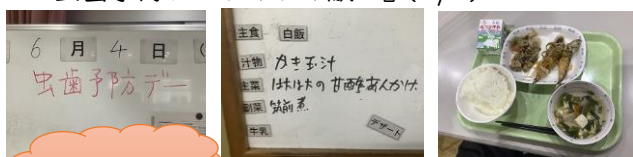 6月4日(
虫歯予防デー
主食 白飯
汁物 かき玉汁
主菜 はたはたの甘酢あんかけ
副菜 筑前煮
牛乳
デザート